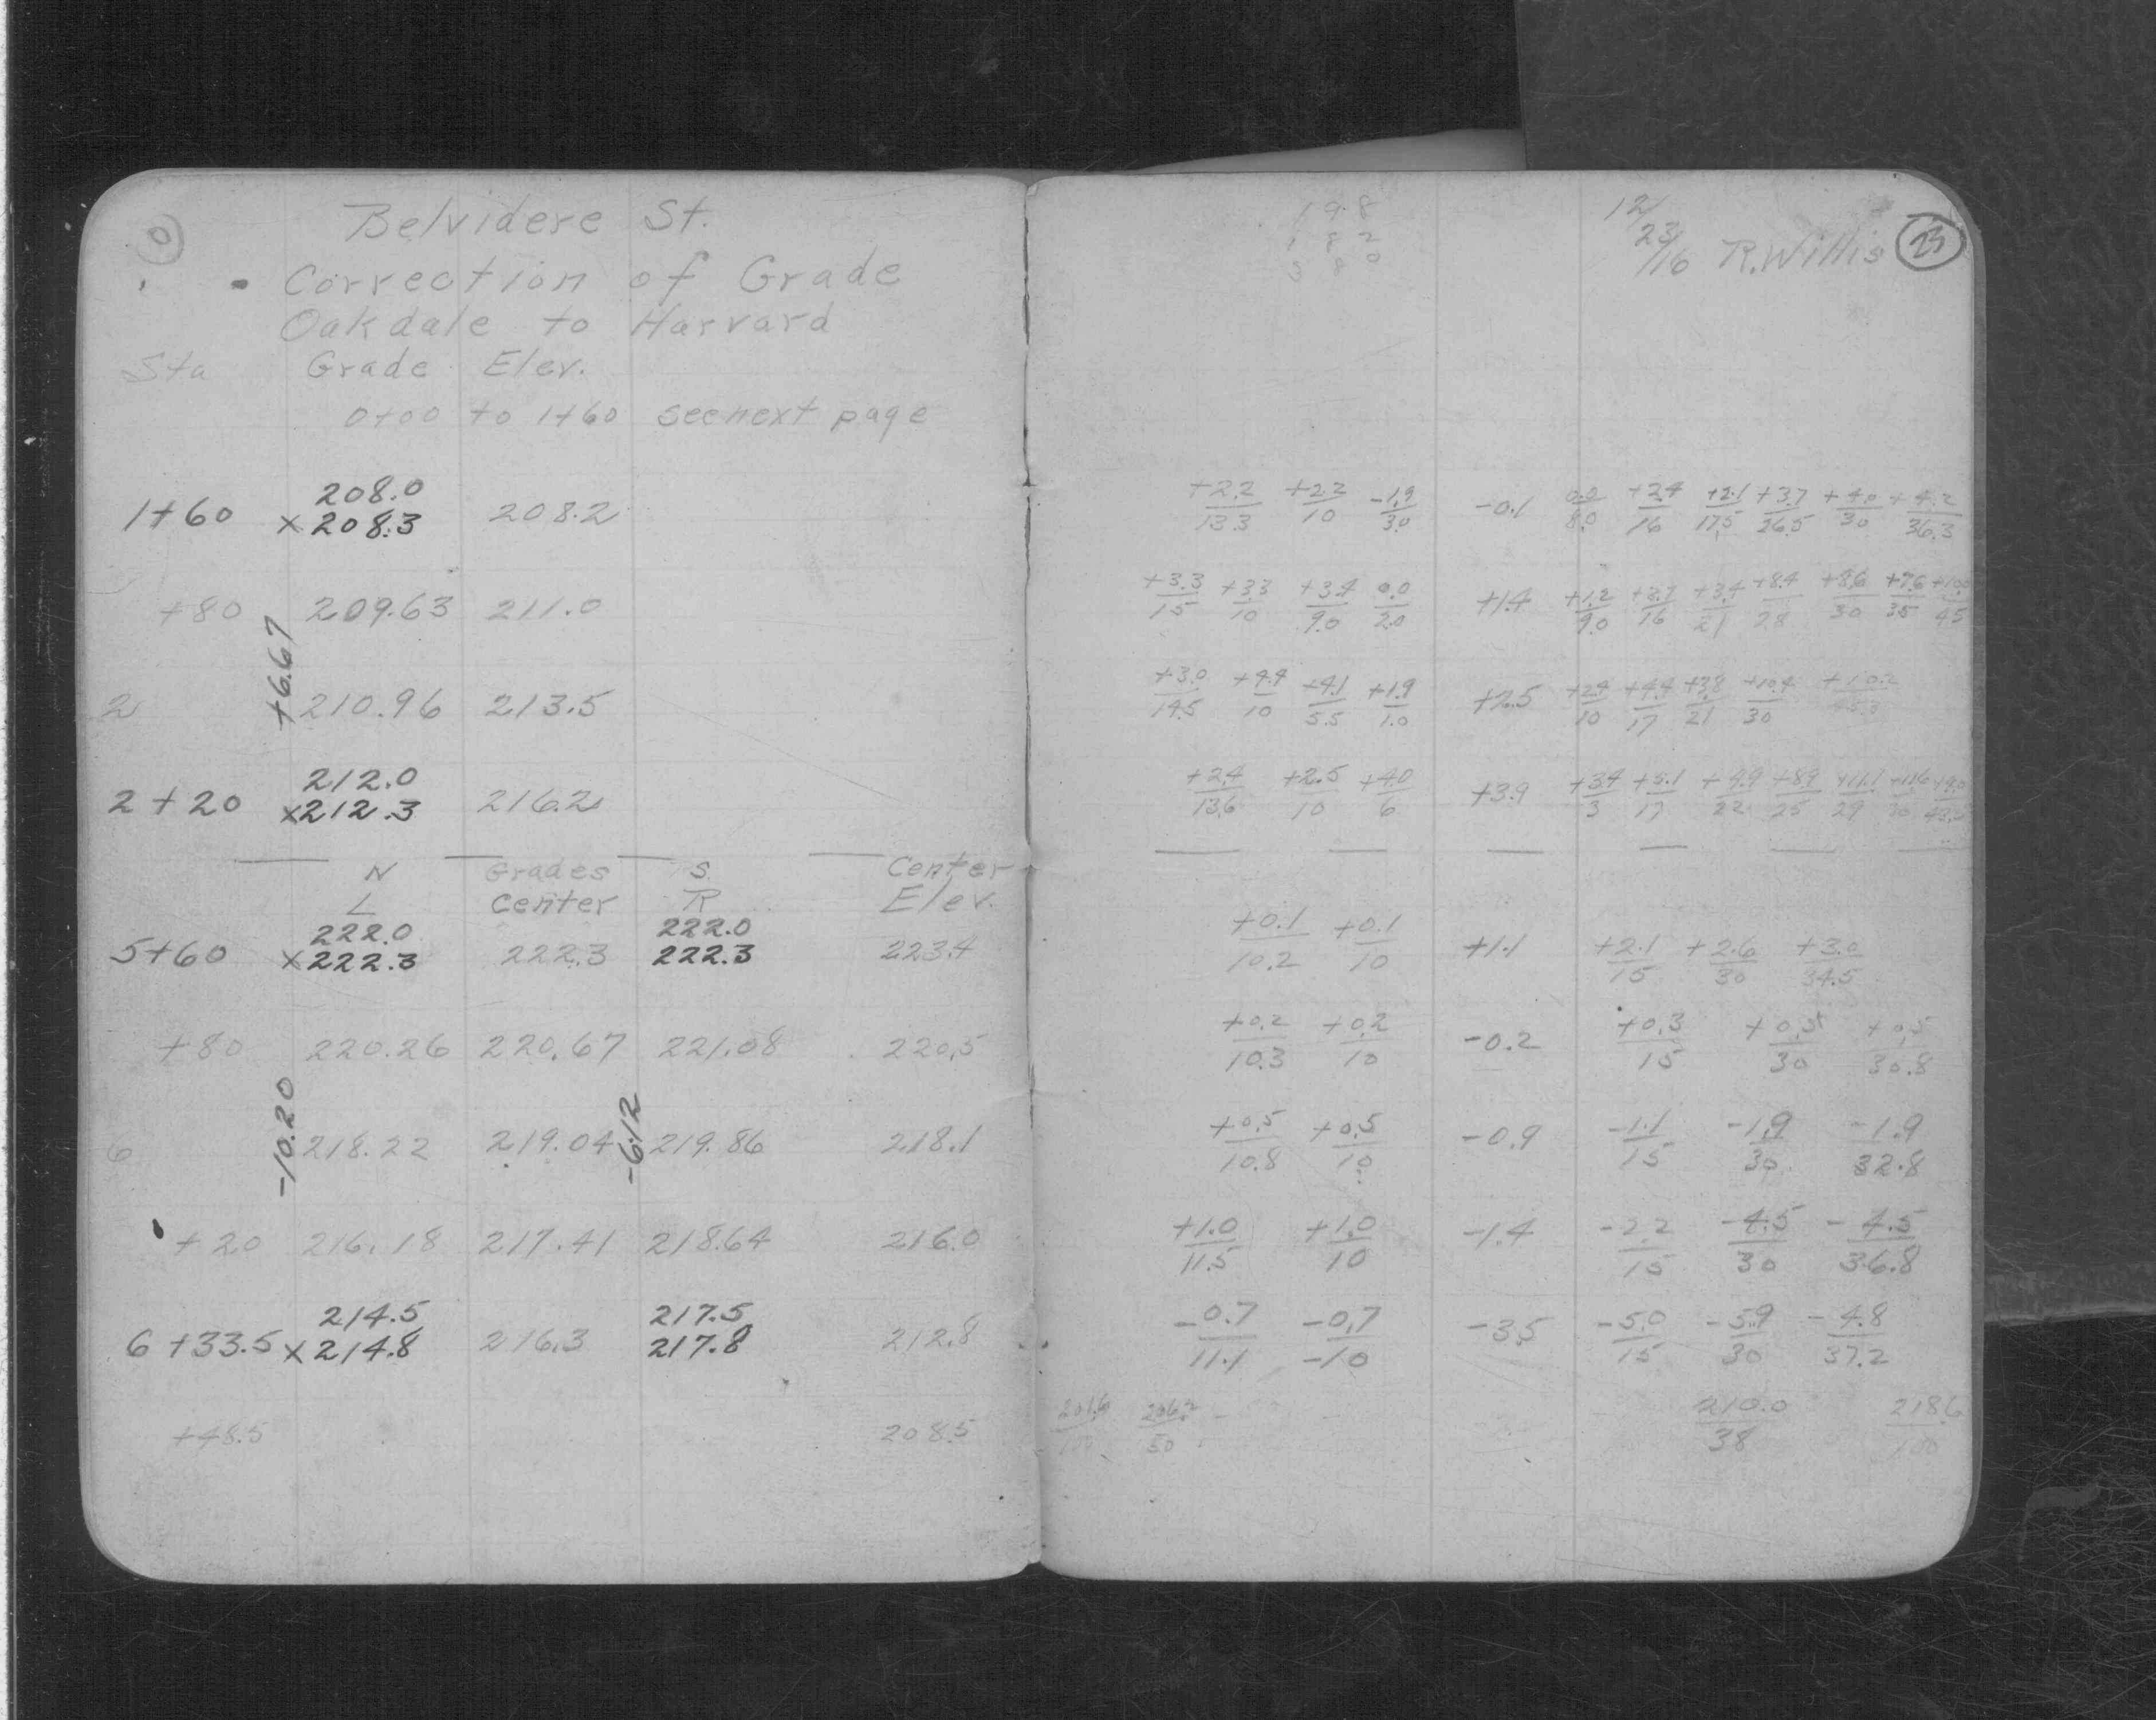 Belvidere St.
Correction of Grade
Oakdale to Harvard
Sta Grade Elev.
0+00 to 1+60 see next page
208.0
1+60 x208.3 208.2
+80 209.63 211.0
+6.67
2 210.96 213.5
212.0
2+20 x212.3 216.2
N Grades S. Center
L Center R Elev.
222.0 222.0
5+60 x222.3 222.3 222.3 223.4
+80 220.26 220.67 221.08 220.5
-10.20 -6.12
6 218.22 219.04 219.86 218.1
+20 216.18 217.41 218.64 216.0
214.5 217.5
6+33.5 x214.8 216.3 217.8 212.8
+48.5 208.5
198
12/23/16 R. Willis 23
+2.2/13.3 +2.2/10 -1.9/3.0 -0.1 0.0/8.0 +2.4/16 +2.1/17.5 +3.7/26.5 +4.0/30 +4.2/36.3
+3.3/15 +3.3/10 +3.4/9.0 0.0/2.0 +1.4 +1.2/9.0 +3.7/16 +3.4/21 +8.4/28 +8.6/30 +7.6/35
+3.0/14.5 +4.4/10 +4.1/5.5 +1.9/1.0 +2.5 +2.4/10 +4.4/17 +3.8/21 +10.4/30
+2.4/13.6 +2.5/10 +4.0/6 +3.9 +3.4/3 +5.1/17 +4.9/22 +8.9/25 +11.7/29
+0.1/10.2 +0.1/10 +1.1 +2.1/15 +2.6/30 +3.0/34.5
+0.2/10.3 +0.2/10 -0.2 +0.3/15 +0.5/30 +0.5/30.8
+0.5/10.8 +0.5/10 -0.9 -1.1/15 -1.9/30 -1.9/32.8
+1.0/11.5 +1.0/10 -1.4 -2.2/15 -4.5/30 -4.5/36.8
-0.7/11.1 -0.7/-10 -3.5 -5.0/15 -5.9/30 -4.8/37.2
206.2/50 210.0/38 218.6/100